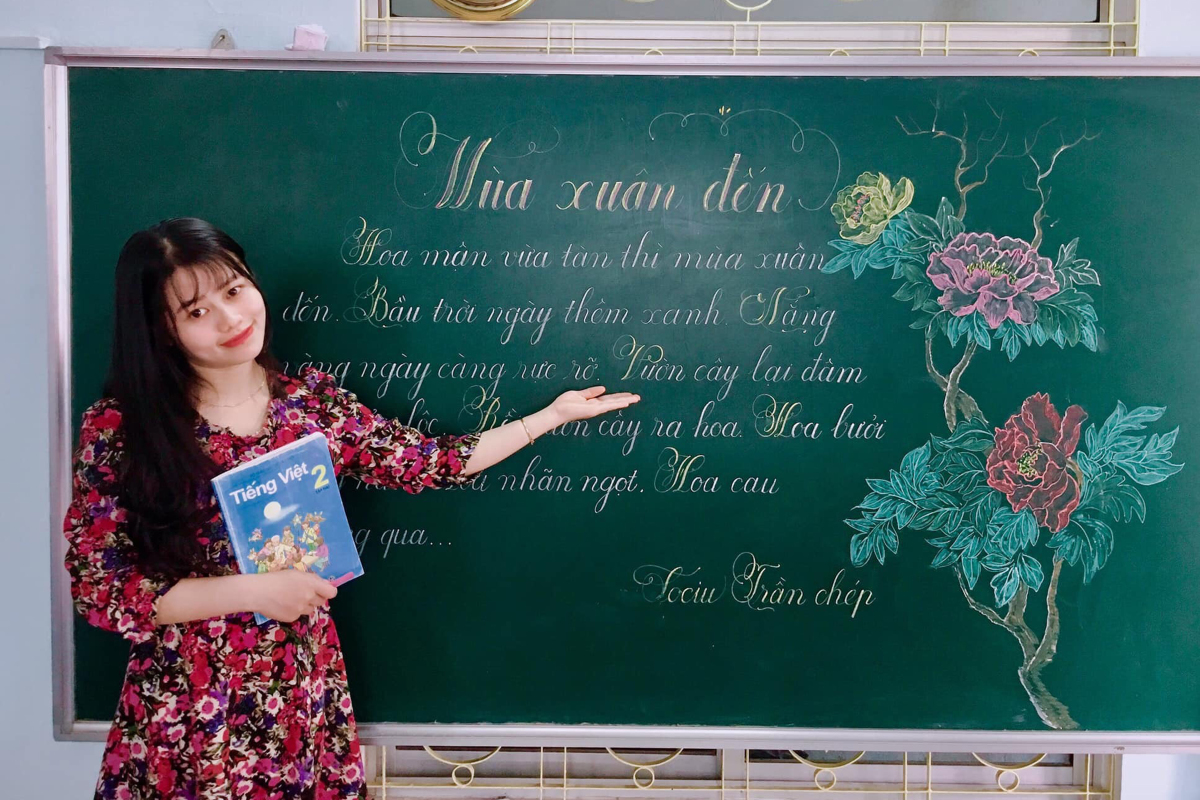 Mùa xuân đến
Hoa mận vừa tàn thì mùa xuân
đến. Bầu trời ngày thêm xanh. Nắng
vàng ngày càng rực rỡ. Vườn cây lại đâm
lộc. cây ra hoa. Hoa bưởi
nhãn ngọt. Hoa cau
qua...
Tociu Trần chép
Tiếng Việt 2